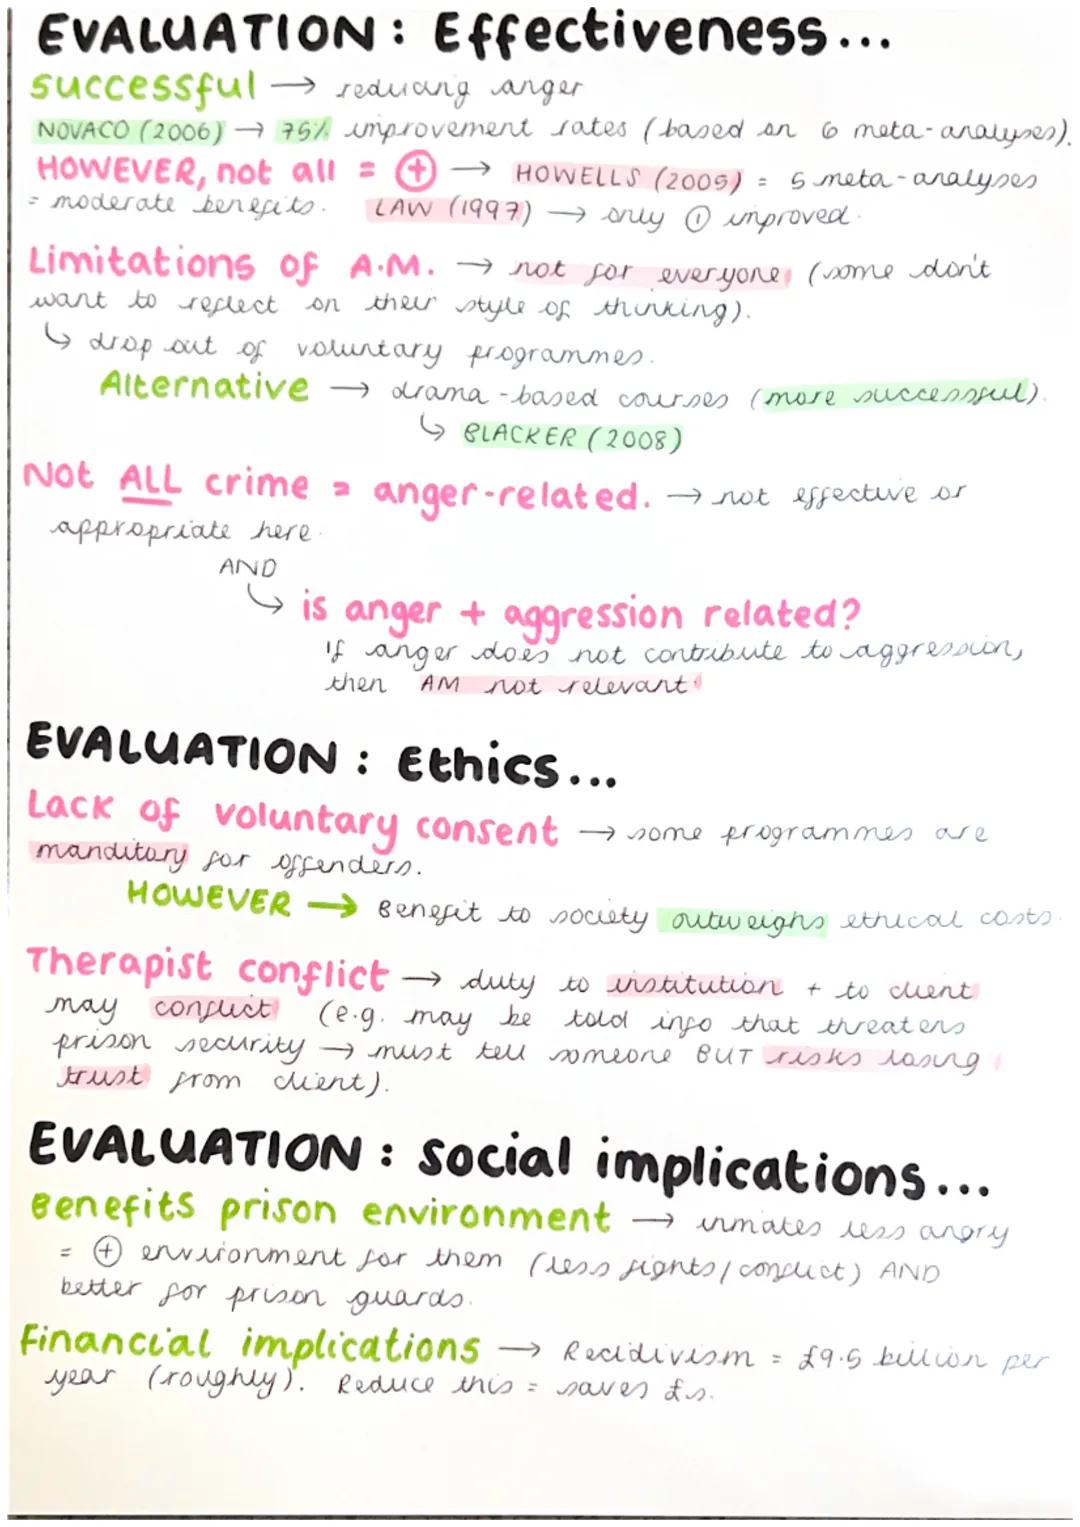 EVALUATION: Effectiveness...
successful → reducing anger
NOVACO (2006) → 75% improvement rates (based on 6 meta-analyses).
HOWEVER, not all = ⊕ → HOWELLS (2005) = 5 meta-analyses
= moderate benefits. LAW (1997) → only ① improved.
Limitations of A.M. → not for everyone (some don't
want to reflect on their style of thinking).
↳ drop out of voluntary programmes.
Alternative → drama-based courses (more successful).
↳ BLACKER (2008)
Not ALL crime = anger-related. → not effective or
appropriate here.
AND
↳ is anger + aggression related?
If anger does not contribute to aggression,
then AM not relevant
EVALUATION: Ethics...
Lack of voluntary consent → some programmes are
manditory for offenders.
HOWEVER → Benefit to society outweighs ethical costs.
Therapist conflict → duty to institution + to client
may conflict (e.g. may be told info that threatens
prison security → must tell someone BUT risks losing
trust from client).
EVALUATION: social implications...
Benefits prison environment → inmates less angry
= ⊕ environment for them (less fights/conflict) AND
better for prison guards.
Financial implications → Recidivism = £9.5 billion per
year (roughly). Reduce this = saves £s.